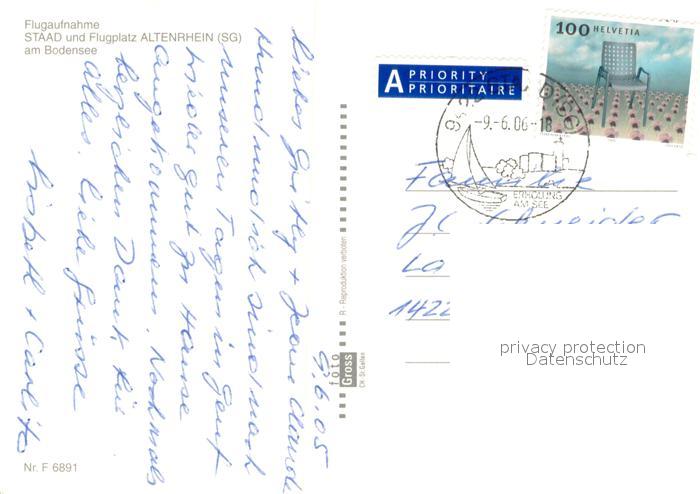 Flugaufnahme
STAAD und Flugplatz ALTENRHEIN (SG)
am Bodensee
9.6.05
Liebes + Jean Claude
sind nach
unseren Tagen in Genf
wieder gut zu Hause
angekommen. Nochmals
herzlichen Dank für
alles. Liebe Grüsse
+ Carlito
Nr. F 6891
R - Reproduktion verboten
foto
Gross
CH. St. Gallen
A PRIORITY
PRIORITAIRE
100 HELVETIA
-9.-6.06-18
ERHOLUNG
AM SEE
Familie
J.C.
La
1422
privacy protection
Datenschutz